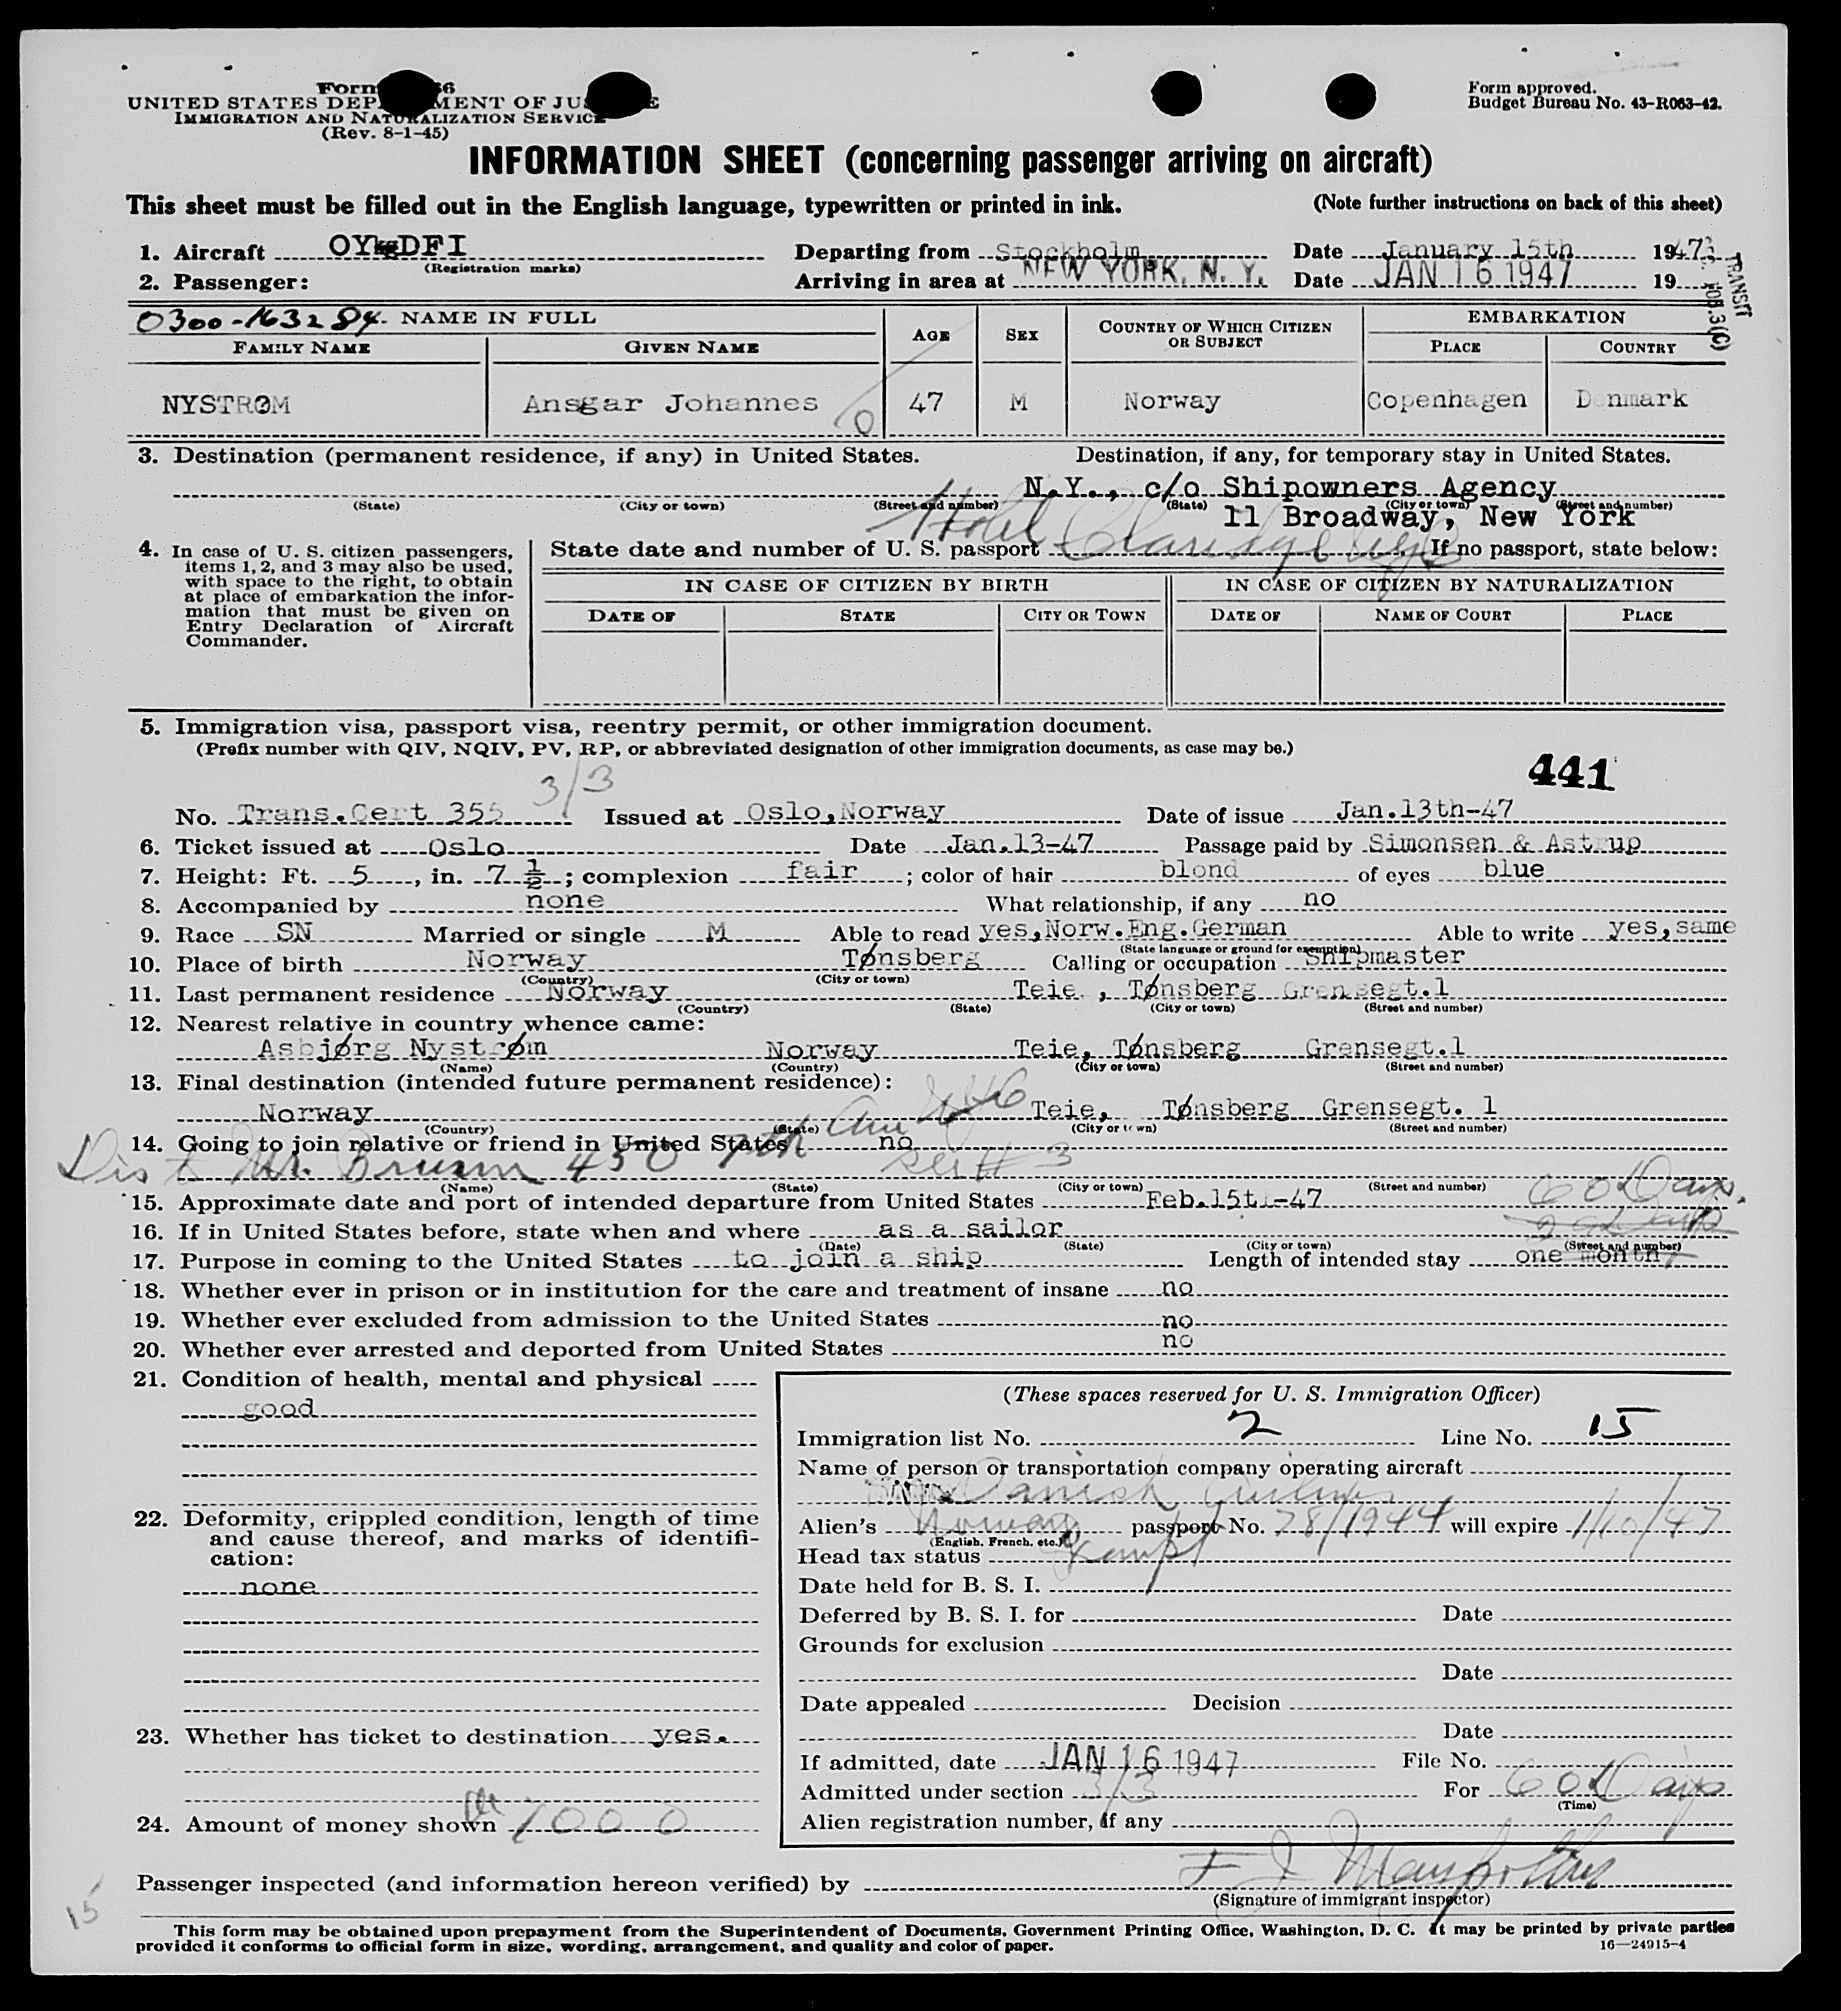 Form 66
UNITED STATES DEPARTMENT OF JUSTICE
IMMIGRATION AND NATURALIZATION SERVICE
(Rev. 8-1-45)
Form approved.
Budget Bureau No. 43-R063-42.
INFORMATION SHEET (concerning passenger arriving on aircraft)
This sheet must be filled out in the English language, typewritten or printed in ink. (Note further instructions on back of this sheet)
1. Aircraft OY DFI Departing from Stockholm. Date January 15th 1947
(Registration marks)
2. Passenger: Arriving in area at NEW YORK, N. Y. Date JAN 16 1947 19
TRANSIT
3(C)
0300-163284 NAME IN FULL AGE SEX COUNTRY OF WHICH CITIZEN OR SUBJECT EMBARKATION
FAMILY NAME GIVEN NAME PLACE COUNTRY
NYSTRØM Ansgar Johannes 47 M Norway Copenhagen Denmark
3. Destination (permanent residence, if any) in United States. Destination, if any, for temporary stay in United States.
N.Y., c/o Shipowners Agency
(State) (City or town) (Street and number) (State) (City or town) (Street and number)
11 Broadway, New York
Hotel Claridge
4. In case of U. S. citizen passengers, items 1, 2, and 3 may also be used, with space to the right, to obtain at place of embarkation the information that must be given on Entry Declaration of Aircraft Commander.
State date and number of U. S. passport If no passport, state below:
IN CASE OF CITIZEN BY BIRTH IN CASE OF CITIZEN BY NATURALIZATION
DATE OF STATE CITY OR TOWN DATE OF NAME OF COURT PLACE
5. Immigration visa, passport visa, reentry permit, or other immigration document.
(Prefix number with QIV, NQIV, PV, RP, or abbreviated designation of other immigration documents, as case may be.)
3/3
441
No. Trans.Cert 355 Issued at Oslo,Norway Date of issue Jan.13th-47
6. Ticket issued at Oslo Date Jan.13-47 Passage paid by Simonsen & Astrup
7. Height: Ft. 5, in. 7 ½; complexion fair; color of hair blond of eyes blue
8. Accompanied by none What relationship, if any no
9. Race SN Married or single M Able to read yes,Norw.Eng.German Able to write yes,same
(State language or ground for exemption)
10. Place of birth Norway Tønsberg Calling or occupation Shipmaster
(Country) (City or town)
11. Last permanent residence Norway Teie , Tønsberg Grensegt.1
(Country) (State) (City or town) (Street and number)
12. Nearest relative in country whence came:
Asbjørg Nystrøm Norway Teie, Tønsberg Grensegt.1
(Name) (Country) (City or town) (Street and number)
13. Final destination (intended future permanent residence):
Norway Teie, Tønsberg Grensegt. 1
(Country) (State) (City or town) (Street and number)
14. Going to join relative or friend in United States no
450 7th
(Name) (State) (City or town) (Street and number)
60 Days.
15. Approximate date and port of intended departure from United States Feb.15th-47
16. If in United States before, state when and where as a sailor
(Date) (State) (City or town) (Street and number)
17. Purpose in coming to the United States to join a ship Length of intended stay one month
18. Whether ever in prison or in institution for the care and treatment of insane no
19. Whether ever excluded from admission to the United States no
20. Whether ever arrested and deported from United States no
21. Condition of health, mental and physical
good
22. Deformity, crippled condition, length of time and cause thereof, and marks of identification:
none
23. Whether has ticket to destination yes.
24. Amount of money shown 1000
(These spaces reserved for U. S. Immigration Officer)
Immigration list No. 2 Line No. 15
Name of person or transportation company operating aircraft
Danish Airlines
Alien's Norway passport No. 78/1944 will expire 1/10/47
(English, French, etc.)
Head tax status Exempt
Date held for B. S. I.
Deferred by B. S. I. for Date
Grounds for exclusion
Date
Date appealed Decision
Date
If admitted, date JAN 16 1947 File No.
Admitted under section 3/3 For 60 Days
(Time)
Alien registration number, if any
Passenger inspected (and information hereon verified) by
(Signature of immigrant inspector)
15
This form may be obtained upon prepayment from the Superintendent of Documents, Government Printing Office, Washington, D. C. It may be printed by private parties
provided it conforms to official form in size, wording, arrangement, and quality and color of paper. 16—24915-4